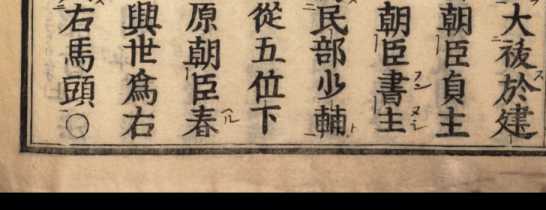 大祓於建
朝臣貞主
朝臣書主
民部少輔
從五位下
原朝臣春
興世爲右
右馬頭○